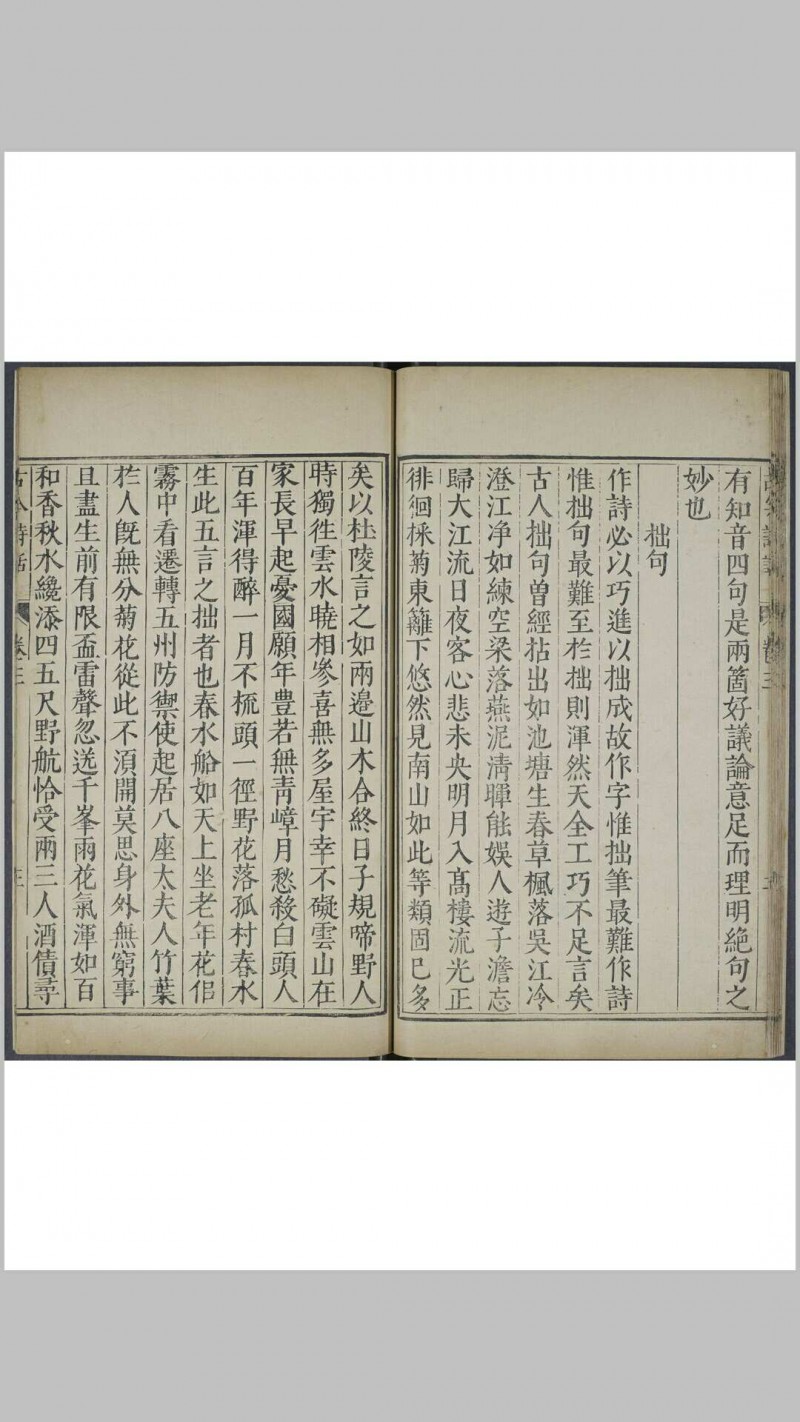 有知音四句是兩箇好議論意足而理明絶句之
妙也
拙句
作詩必以巧進以拙成故作字惟拙筆最難作詩
惟拙句最難至扵拙則渾然天全工巧不足言矣
古人拙句曽經拈出如池塘生春草楓落吳江冷
澄江净如練空梁落燕泥淸暉能娛人遊子澹忘
歸大江流日夜客心悲未央明月入髙樓流光正
徘徊採菊東籬下悠然見南山如此等類固已多
矣以杜陵言之如兩邉山木合終日子規啼野人
時獨徃雲水曉相參喜無多屋宇幸不礙雲山在
家長早起憂國願年豊若無靑嶂月愁殺白頭人
百年渾得醉一月不梳頭一徑野花落孤村春水
生此五言之拙者也春水船如天上坐老年花佀
霧中看遷轉五州防禦使起居八座太夫人竹葉
扵人旣無分菊花從此不湏開莫思身外無窮事
且盡生前有限盃雷聲忽送千峯雨花氣渾如百
和香秋水纔添四五尺野航恰受兩三人酒債尋
古今詩話 卷三